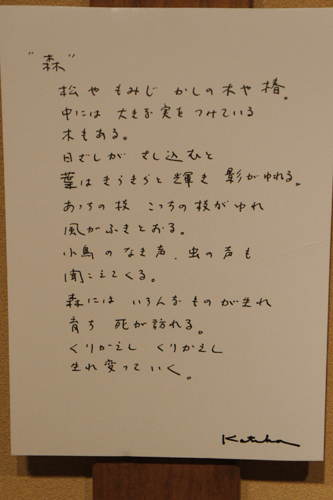 "森"
松 や もみじ かしの木や 椿。
中には 大きな実をつけている
木もある。
日ざしが さし込むと
葉はきらきらと輝き 影がゆれる。
あっちの枝 こっちの枝がゆれ
風がふきとおる。
小鳥のなき声、虫の声も
聞こえてくる。
森には いろんなものが生れ
育ち 死が訪れる。
くりかえし くりかえし
生れ変っていく。